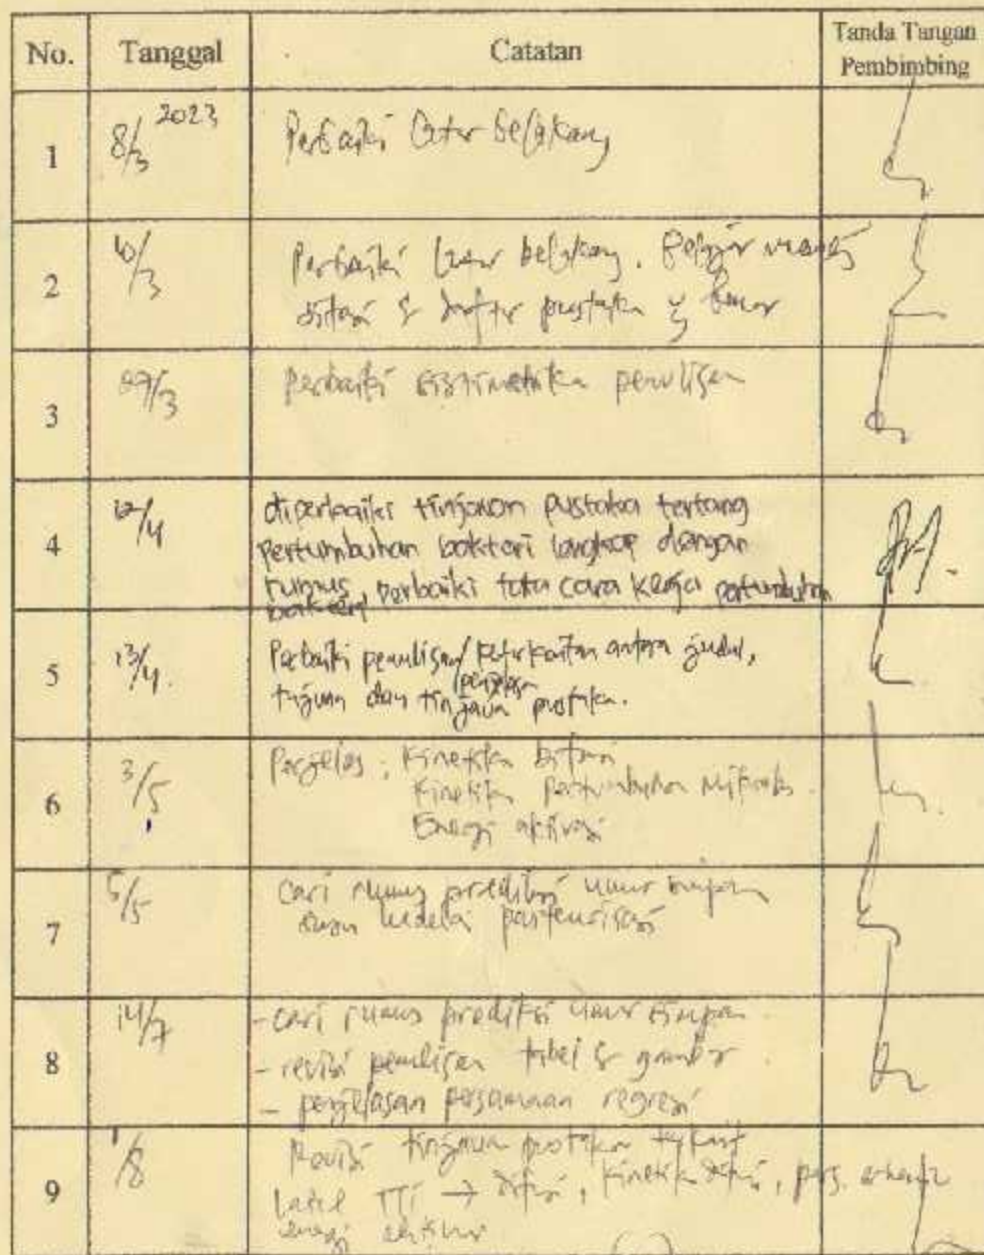 No. Tanggal Catatan Tanda Tangan
Pembimbing
1 8/3 2023 Perbaiki latar belakang
2 10/3 Perbaiki latar belakang. Belajar
sitasi & daftar pustaka yg benar
3 27/3 Perbaiki sistimatika penulisan
4 12/4 diperbaiki tinjauan pustaka tentang
pertumbuhan bakteri lengkap dengan
rumus, perbaiki tata cara kerja pertumbuhan
bakteri
5 13/4. Perbaiki penulisan/keterkaitan antara judul,
tujuan dan tinjauan pustaka.
6 3/5 Perjelas : Kinetika
Kinetika Pertumbuhan Mikroba
Energi aktivasi
7 5/5 cari rumus prediksi umur simpan
pasteurisasi
8 14/7 - cari rumus prediksi umur simpan
- revisi penulisan tabel & gambar
- penjelasan persamaan regresi
9 1/8 Revisi tinjauan pustaka terkait
Label TTI → difusi, kinetika difusi, pers.
energi